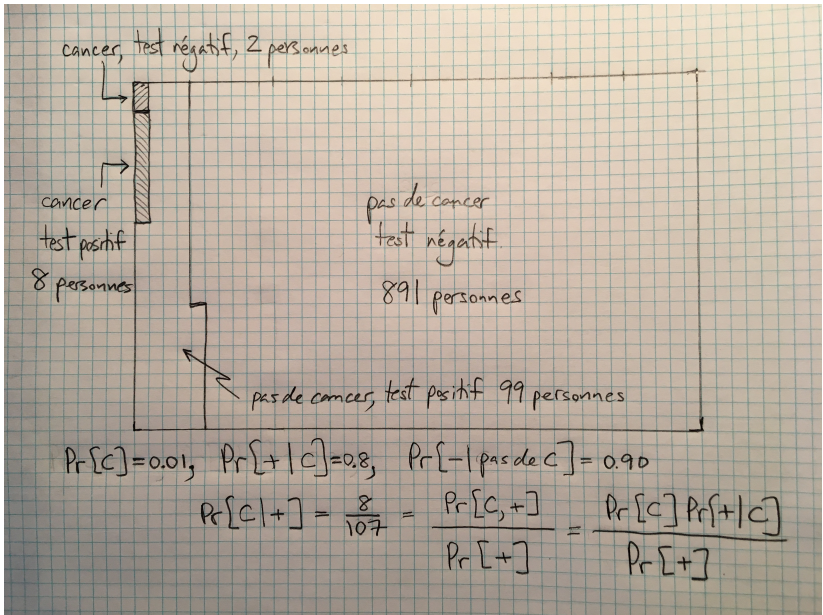 cancer, test négatif, 2 personnes
cancer
test positif
8 personnes
pas de cancer
test négatif.
891 personnes
pas de cancer, test positif 99 personnes
Pr[C]=0.01, Pr[+|C]=0.8, Pr[-|pas de C]=0.90
Pr[C|+] = 8/107 = Pr[C,+]/Pr[+] = Pr[C]Pr[+|C]/Pr[+]